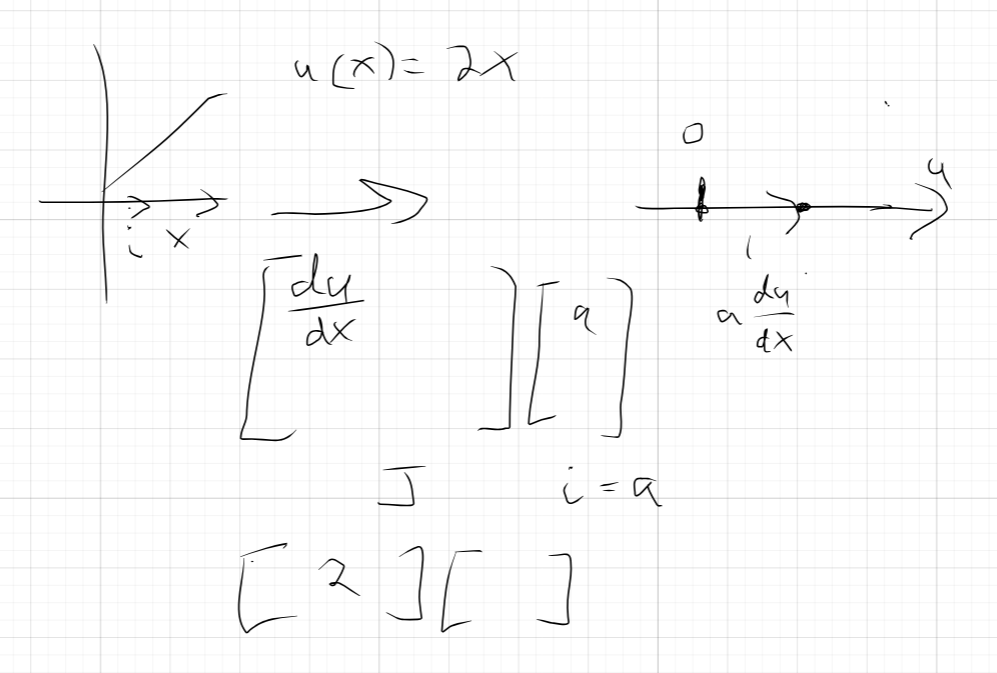 u(x) = 2x
0
u
i x
1
[du/dx] [a] a du/dx
J i = a
[2] [ ]